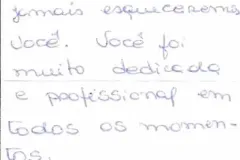 jamais esqueceremos
você. Você foi
muito dedicada
e profissional em
todos os momen-
tos.